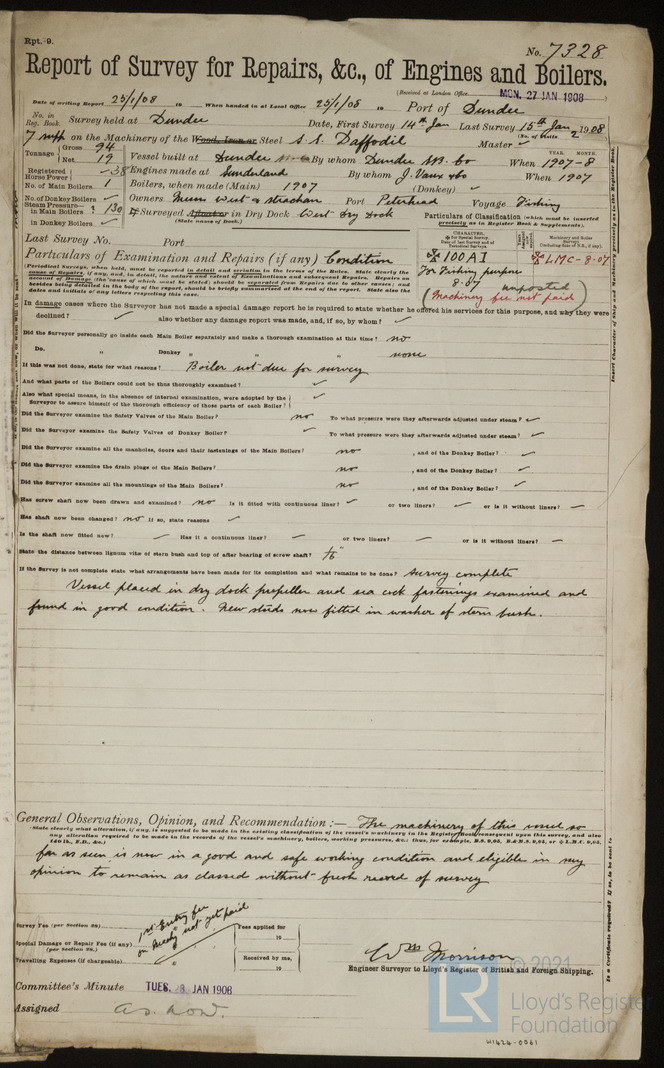 Rpt. 9.
No. 7328
Report of Survey for Repairs, &c., of Engines and Boilers.
(Received at London Office MON. 27 JAN 1908
Date of writing Report 25/1/08 19 When handed in at Local Office 25/1/08 19 Port of Dundee
No. in Reg. Book. Survey held at Dundee Date, First Survey 14th Jan Last Survey 15th Jan 1908
(No. of Visits 2
7 supp on the Machinery of the Wood, Iron or Steel S.S. Daffodil Master ✓
Tonnage Gross 94 Net 19 Vessel built at Dundee By whom Dundee SB. Co When 1907-8
YEAR. MONTH.
Registered Horse Power 38 Engines made at Sunderland By whom J. Vaux & Co When 1907
No. of Main Boilers 1 Boilers, when made (Main) 1907 (Donkey) ✓
No. of Donkey Boilers ✓ Owners Messrs West & Strachan Port Peterhead Voyage Fishing
Steam Pressure in Main Boilers 130 If Surveyed Afloat or in Dry Dock West Dry Dock
(State name of Dock.)
in Donkey Boilers ✓
Particulars of Classification (which must be inserted precisely as in Register Book & Supplements).
Last Survey No. Port
Particulars of Examination and Repairs (if any) Condition
CHARACTER.
Machinery and Boiler Surveys (including date of N.B., if any).
100A1
LMC-8.07
For Fishing purpose
8.07
unposted
(Machinery fee not paid)
(Periodical Surveys, when held, must be reported in detail and seriatim in the terms of the Rules. State clearly the
cause of Repairs, if any, and, in detail, the nature and extent of Examinations and subsequent Repairs. Repairs on
account of Damage (the cause of which must be stated) should be separated from Repairs due to other causes; and
besides being detailed in the body of the report, should be briefly summarised at the end of the report. State also the
dates and initials of any letters respecting this case.
In damage cases where the Surveyor has not made a special damage report he is required to state whether he offered his services for this purpose, and why they were
declined? ✓ also whether any damage report was made, and, if so, by whom? ✓
Did the Surveyor personally go inside each Main Boiler separately and make a thorough examination at this time? no
Do. " Donkey " " " none
If this was not done, state for what reasons? Boiler not due for survey
And what parts of the Boilers could not be thus thoroughly examined? ✓
Also what special means, in the absence of internal examination, were adopted by the
Surveyor to assure himself of the thorough efficiency of those parts of each Boiler? ✓
Did the Surveyor examine the Safety Valves of the Main Boiler? no To what pressure were they afterwards adjusted under steam? ✓
Did the Surveyor examine the Safety Valves of Donkey Boiler? ✓ To what pressure were they afterwards adjusted under steam? ✓
Did the Surveyor examine all the manholes, doors and their fastenings of the Main Boilers? no , and of the Donkey Boiler? ✓
Did the Surveyor examine the drain plugs of the Main Boilers? no , and of the Donkey Boiler? ✓
Did the Surveyor examine all the mountings of the Main Boilers? no , and of the Donkey Boiler? ✓
Has screw shaft now been drawn and examined? no Is it fitted with continuous liner? ✓ or two liners? ✓ or is it without liners? —
Has shaft now been changed? no If so, state reasons ✓
Is the shaft now fitted new? — Has it a continuous liner? — or two liners? — or is it without liners? —
State the distance between lignum vitæ of stern bush and top of after bearing of screw shaft? 1/16"
If the Survey is not complete state what arrangements have been made for its completion and what remains to be done? Survey complete
Vessel placed in dry dock propeller and sea cock fastenings examined and
found in good condition. New studs now fitted in washer of stern bush.
General Observations, Opinion, and Recommendation :— The machinery of this vessel so
(State clearly what alteration, if any, is suggested to be made in the existing classification of the vessel's machinery in the Register Book consequent upon this survey, and also
any alteration required to be made in the records of the vessel's machinery, boilers, working pressures, &c.: thus, for example, B.S. 9,05, B.&M.S. 9,05, or L.M.C. 9,05,
140 lb., F.D., &c.)
far as seen is now in a good and safe working condition and eligible in my
opinion to remain as classed without fresh record of survey
1st Entry fee
on Mach'y not yet paid
Survey Fee (per Section 29)
Fees applied for
19
Special Damage or Repair Fee (if any)
(per Section 28.)
Travelling Expenses (if chargeable)
Received by me,
19
Wm Morrison
Engineer Surveyor to Lloyd's Register of British and Foreign Shipping.
Committee's Minute TUES. 28 JAN 1908
Assigned as now.
© 2021
LR
Lloyd's Register
Foundation
W1424-0061
Insert Character of Ship and Machinery precisely as in the Register Book.
Is a Certificate required? If so, to be sent to